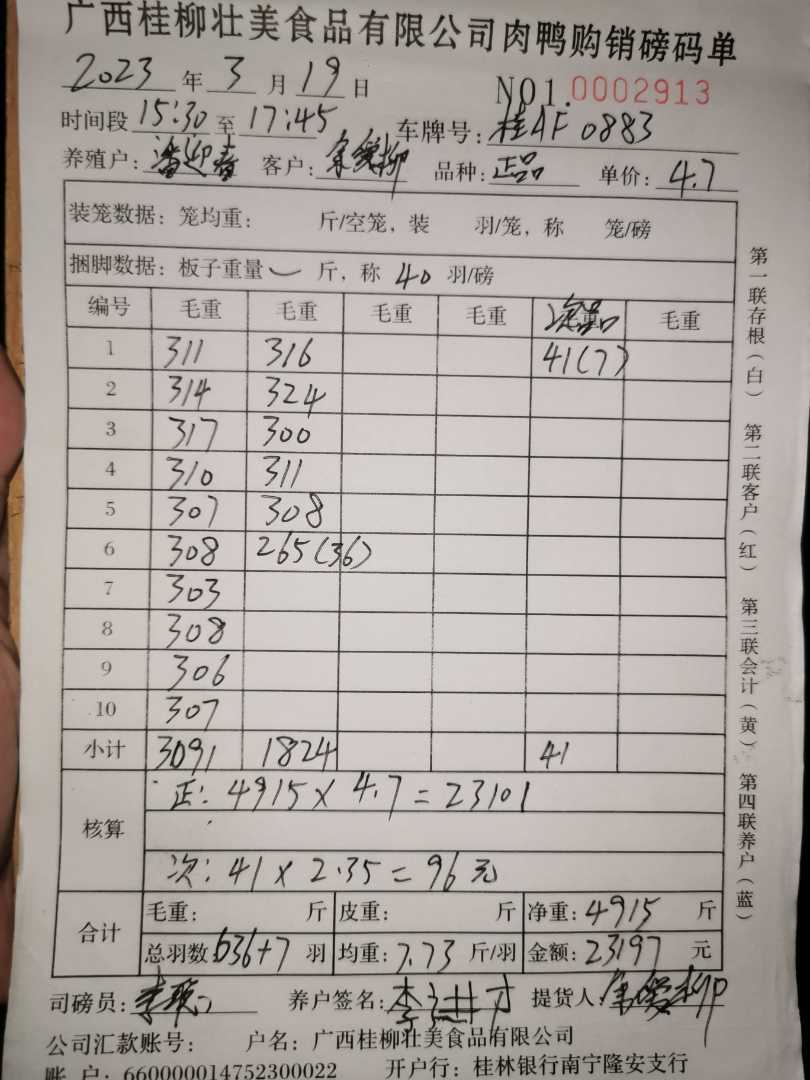 广西桂柳壮美食品有限公司肉鸭购销磅码单
2023 年 3 月 19 日 NO1.0002913
时间段 15:30 至 17:45 车牌号: 桂AF 0883
养殖户: 潘迎春 客户: 品种: 正品 单价: 4.7
装笼数据: 笼均重: 斤/空笼, 装 羽/笼, 称 笼/磅
捆脚数据: 板子重量 一 斤, 称 40 羽/磅
编号 毛重 毛重 毛重 毛重 次品 毛重
1 311 316 41(7)
2 314 324
3 317 300
4 310 311
5 307 308
6 308 265(36)
7 303
8 308
9 306
10 307
小计 3091 1824 41
核算 正: 4915 × 4.7 = 23101
次: 41 × 2.35 = 96 元
合计 毛重: 斤 皮重: 斤 净重: 4915 斤
总羽数 636+7 羽 均重: 7.73 斤/羽 金额: 23197 元
司磅员: 养户签名: 提货人:
公司汇款账号: 户名: 广西桂柳壮美食品有限公司
账 户: 660000014752300022 开户行: 桂林银行南宁隆安支行
第一联存根(白) 第二联客户(红) 第三联会计(黄) 第四联养户(蓝)